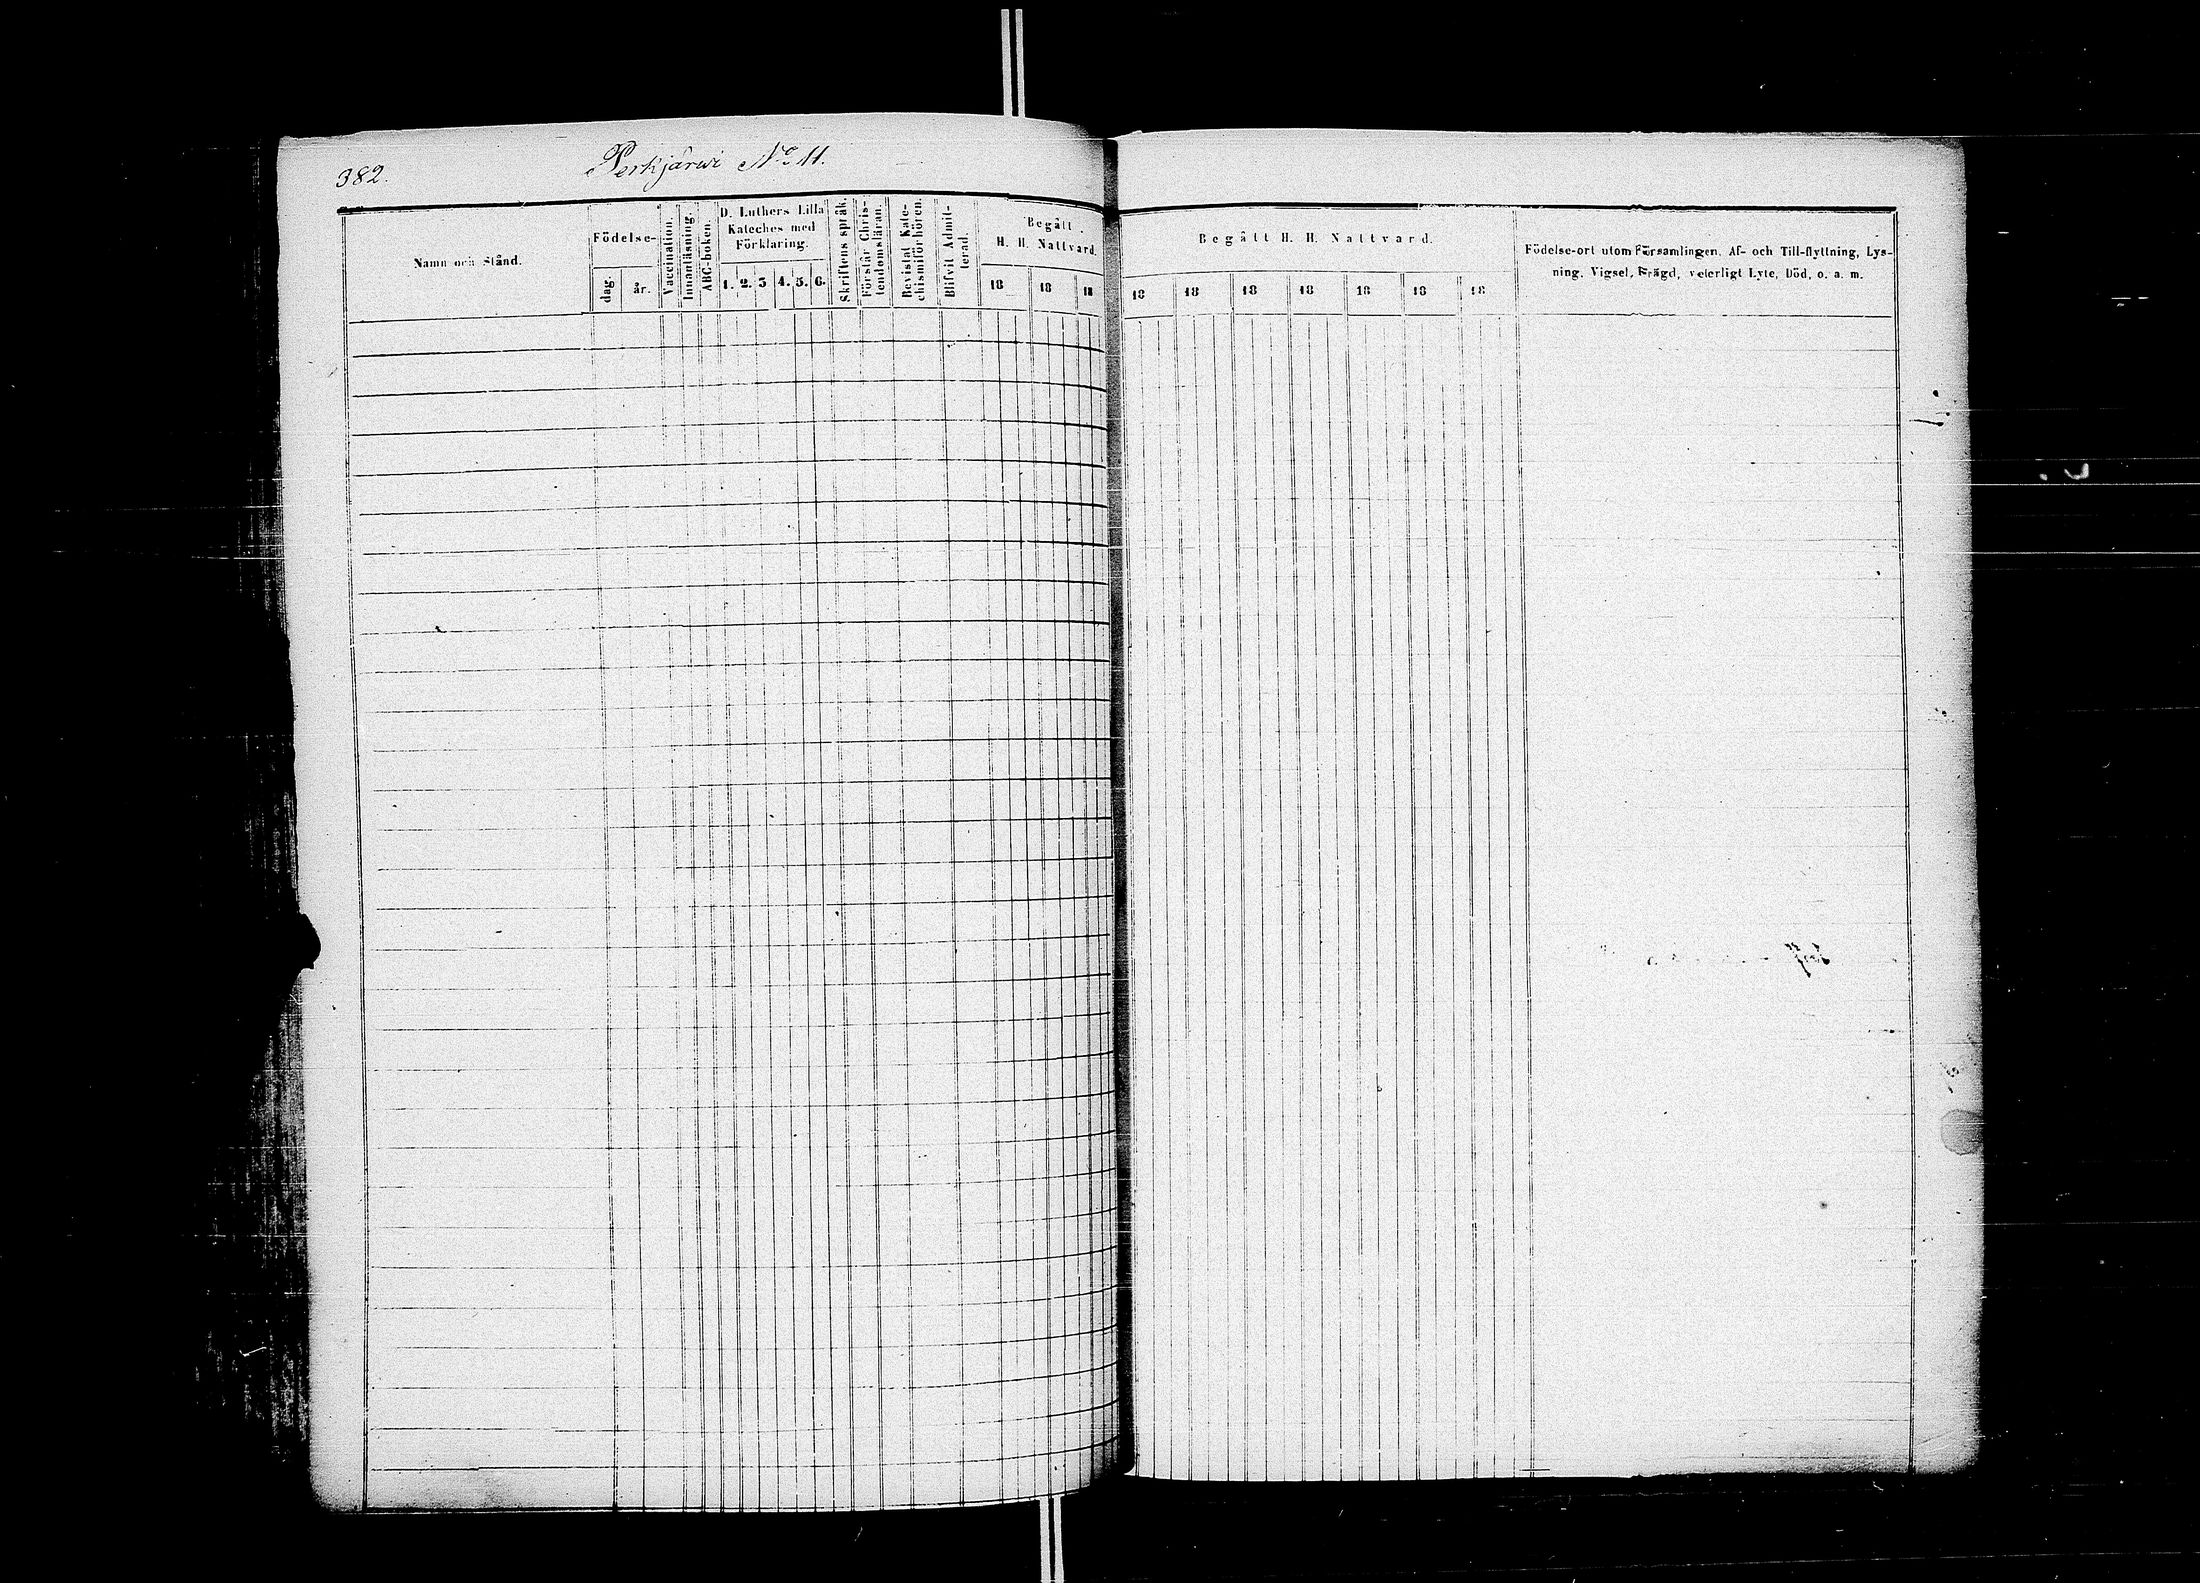 382.
Perkjärwi No 11.
Namn och Stånd.
Födelse-
dag.
år.
Vaccination.
Innanläsning.
ABC-boken.
D. Luthers Lilla
Kateches med
Förklaring.
1. 2. 3 4. 5. 6.
Skriftens språk.
Förstår Chris-
tendomsläran.
Bevistat Kate-
chismiförhören.
Blifvit Admit-
terad.
Begått
H. H. Nattvard.
18 18 18
Begått H. H. Nattvard.
18 18 18 18 18 18 18
Födelse-ort utom Församlingen, Af- och Till-flyttning, Lys-
ning, Vigsel, Frägd, veterligt Lyte, Död, o. a. m.